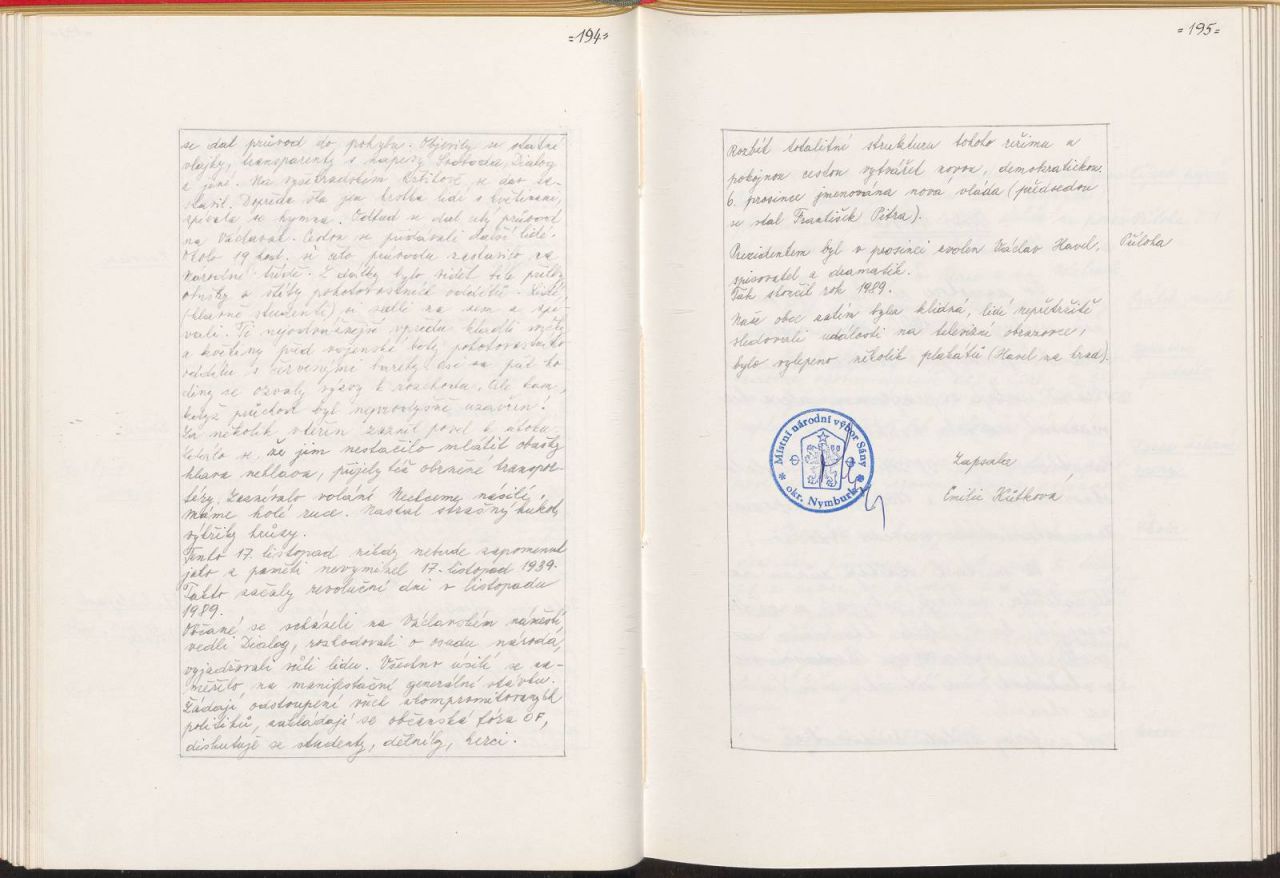 =194=
se dal průvod do pohybu. Objevily se státní
vlajky, transparenty s nápisy Svoboda, Dialog
a jiné. Na vyšehradském se dav za-
stavil. Dopředu šla jen hrstka lidí s květinami,
zpívala se hymna. Odtud se dal celý průvod
na Václavák. Cestou se přidávali další lidé.
Okolo 19 hod. si čelo průvodu zastavilo na
Národní třídě. Z dálky bylo vidět bílé přilby
obušky a štíty pohotovostních oddílů. Lidé,
(hlavně studenti) si sedli na zem a zpí-
vali. Ti nejodvážnější vpředu kladli svíčky
a květiny před vojenské boty pohotovostního
oddílu s červenými barety. Asi za půl ho-
diny se ozvaly výzvy k rozchodu. Ale kam,
když průchod byl neprodyšně uzavřen!
Za několik vteřin zazněl povel k útoku.
se, že jim nestačilo mlátit obušky
hlava nehlava, přijely též obrněné transpor-
téry. Zaznívalo volání Nechceme násilí,
máme holé ruce. Nastal strašný hukot,
výkřiky hrůzy.
Tento 17. listopad nikdy nebude zapomenut
jako z paměti nevymizel 17. listopad 1939.
Takto začaly revoluční dni v listopadu
1989.
Občané se scházeli na Václavském náměstí,
vedli Dialog, rozhodovali o osudu národa,
vyjadřovali vůli lidu. Všechno úsilí se za-
měřilo na manifestační generální stávku.
Žádají odstoupení všech zkompromitovaných
politiků, zakládají se občanská fóra OF,
diskutuje se studenty, dělníky, herci.
=195=
Rozbít totalitní strukturu tohoto režimu a
pokojnou cestou vytvářet novou, demokratickou.
6. prosince jmenována nová vláda (předsedou
se stal František Pitra).
Prezidentem byl v prosinci zvolen Václav Havel, Příloha
spisovatel a dramatik.
Tak skončil rok 1989.
Naše obec zatím byla klidná, lidé nepřetržitě
sledovali události na televizní obrazovce,
bylo vylepeno několik plakátů (Havel na hrad).
Místní národní výbor Sány
okr. Nymburk
Zapsala
Emilie